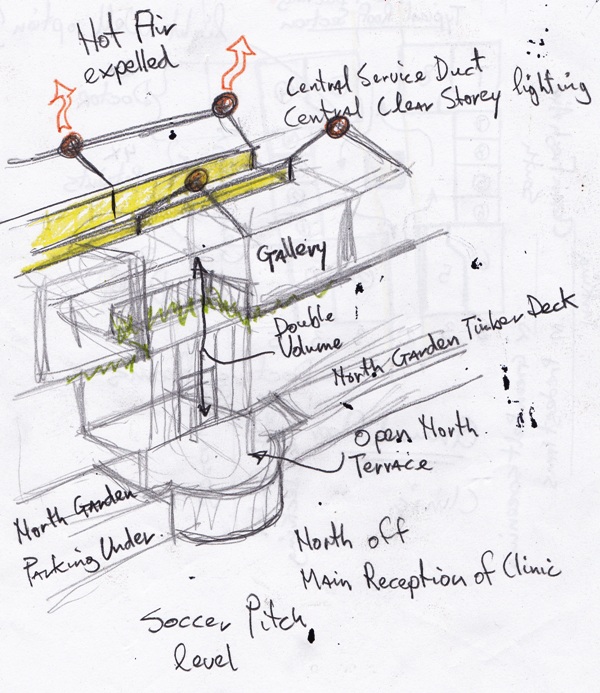 Hot Air
expelled
Central Service Duct
Central Clear Storey lighting
Gallery
Double
Volume
North Garden Timber Deck
Open North
Terrace
North Garden
Parking Under.
North off
Main Reception of Clinic
Soccer Pitch
level